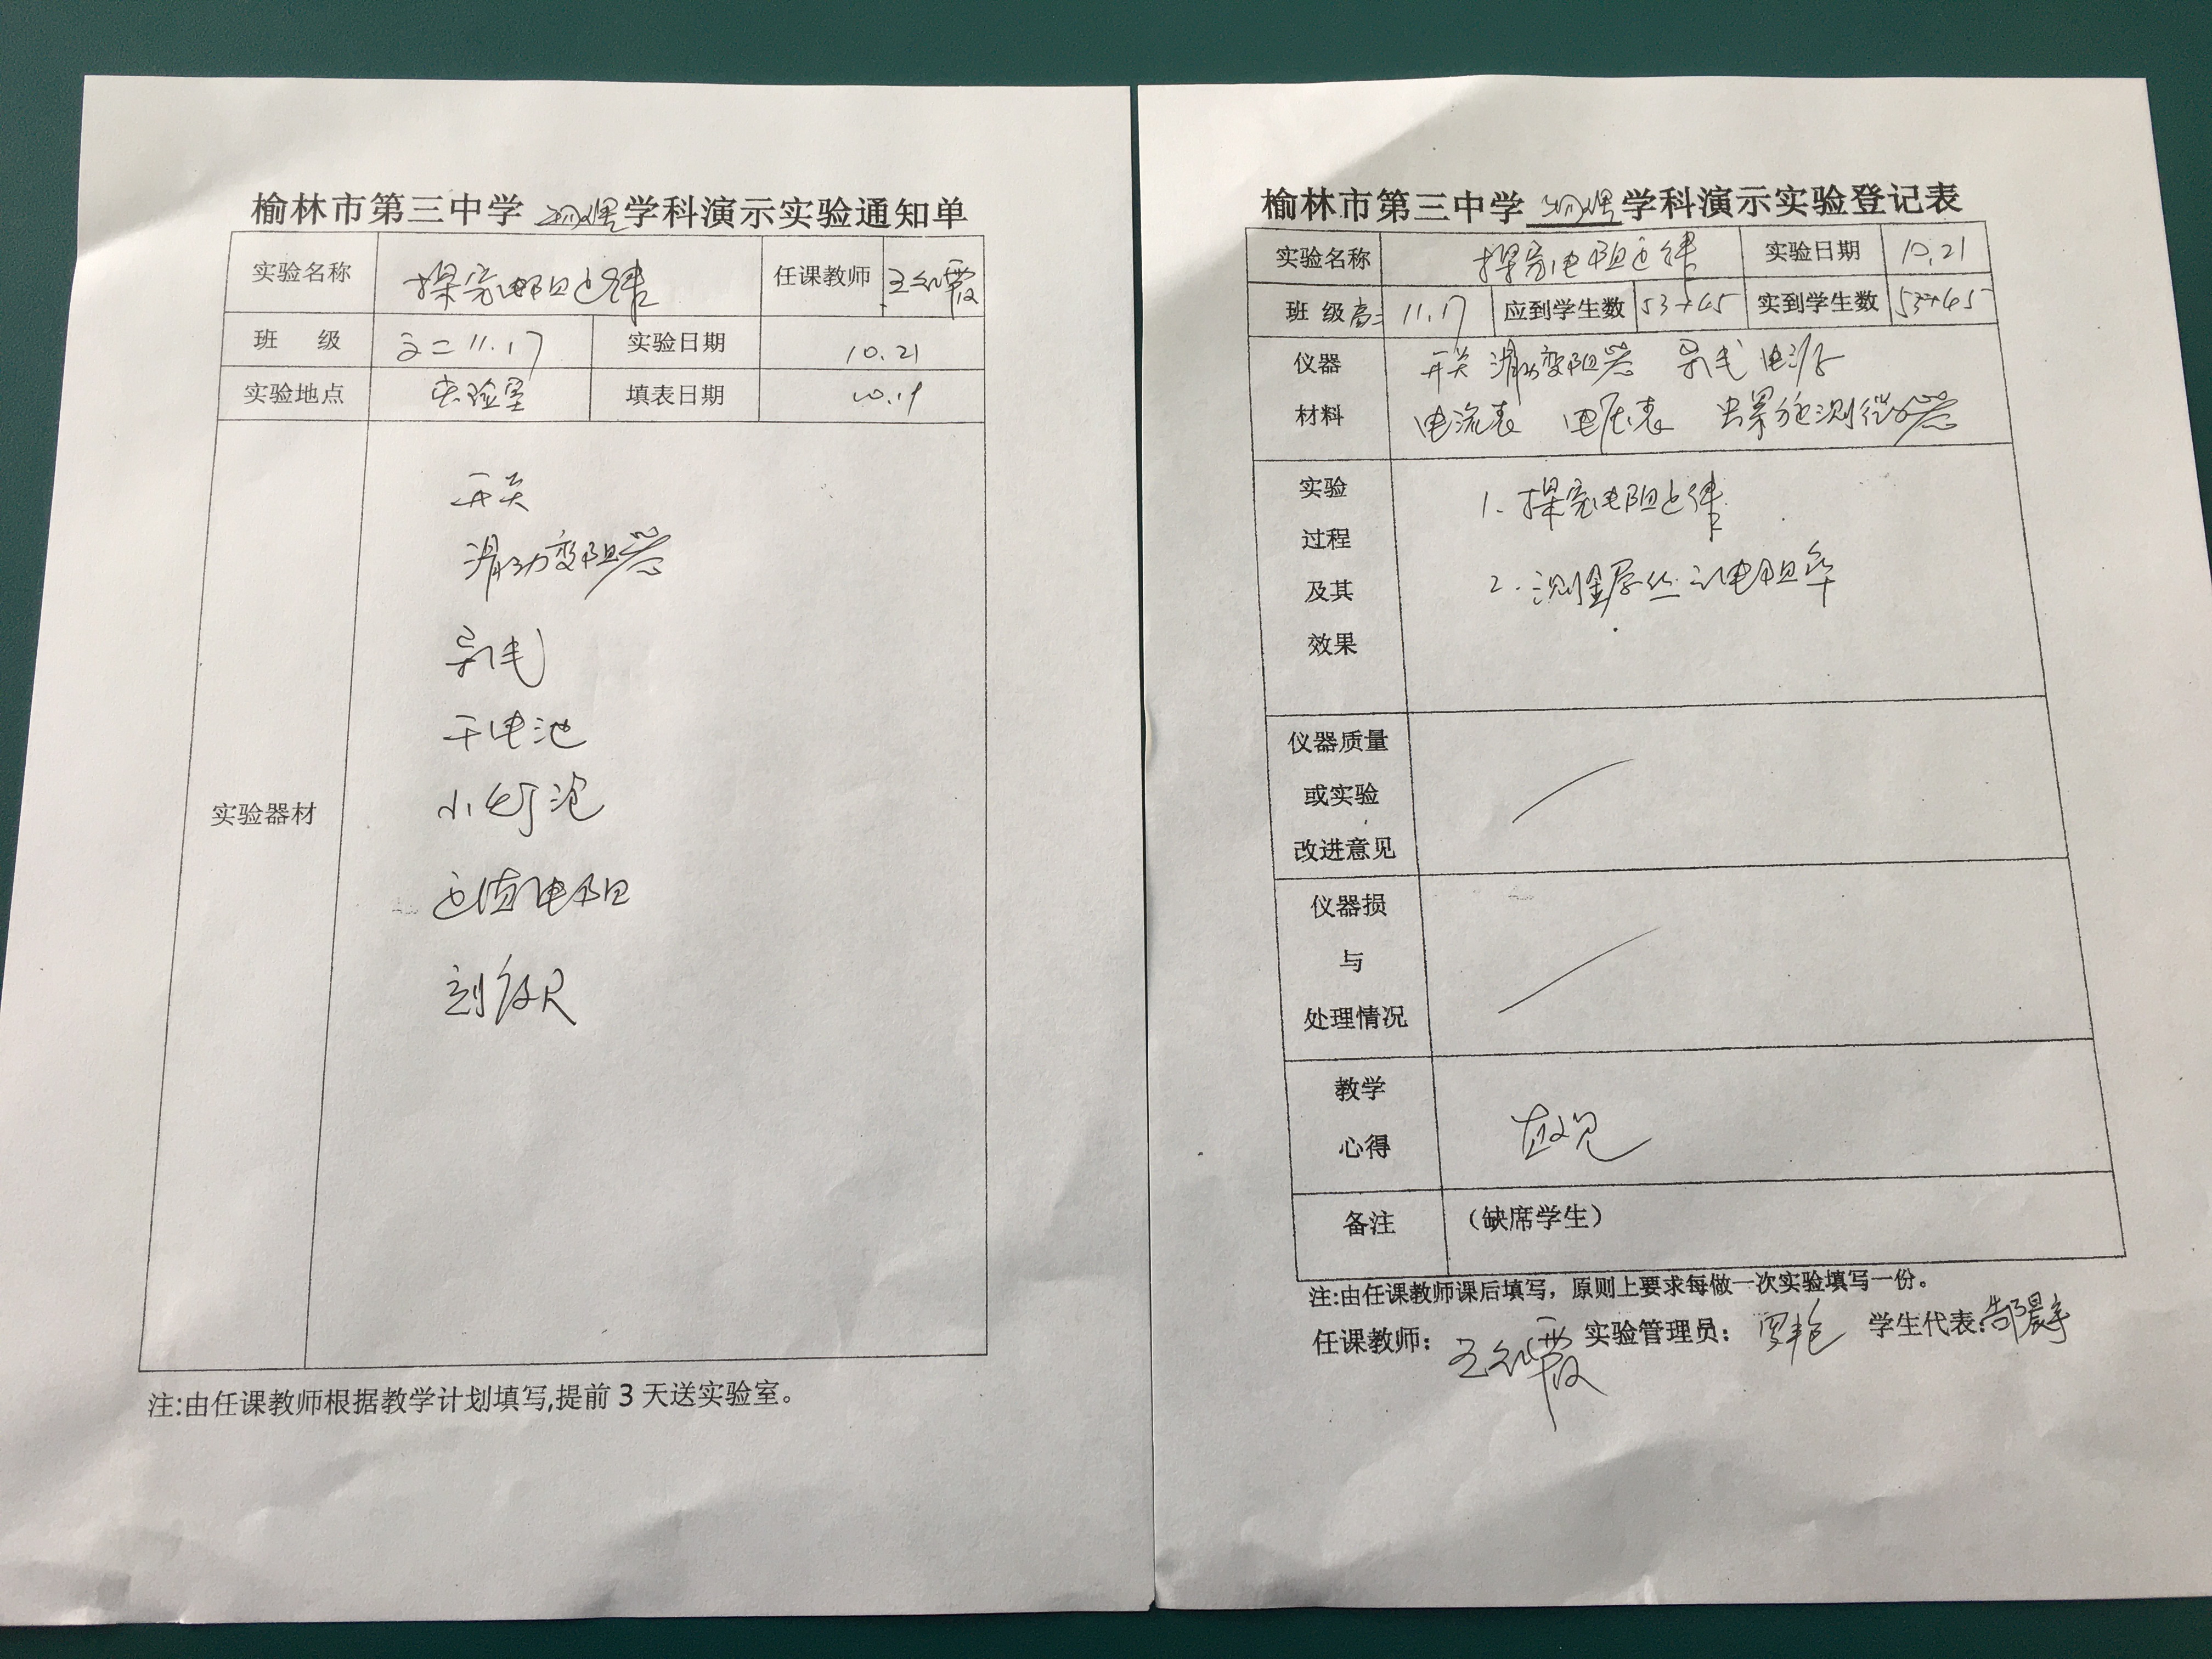 榆林市第三中学 物理 学科演示实验通知单
实验名称 探究电阻定律 任课教师
班 级 高二 11.17 实验日期 10.21
实验地点 实验室 填表日期 10.19
实验器材
开关
滑动变阻器
导线
干电池
小灯泡
定值电阻
刻度尺
注:由任课教师根据教学计划填写,提前3天送实验室。
榆林市第三中学 物理 学科演示实验登记表
实验名称 探究电阻定律 实验日期 10.21
班 级 高二 11.17 应到学生数 53+45 实到学生数 53+45
仪器 开关 滑动变阻器 导线 电源
材料 电流表 电压表 测微器
实验 1. 探究电阻定律
过程
及其 2. 测金属丝的电阻率
效果
仪器质量
或实验
改进意见
仪器损
与
处理情况
教学
心得 直观
备注 （缺席学生）
注:由任课教师课后填写，原则上要求每做一次实验填写一份。
任课教师： 实验管理员： 学生代表: